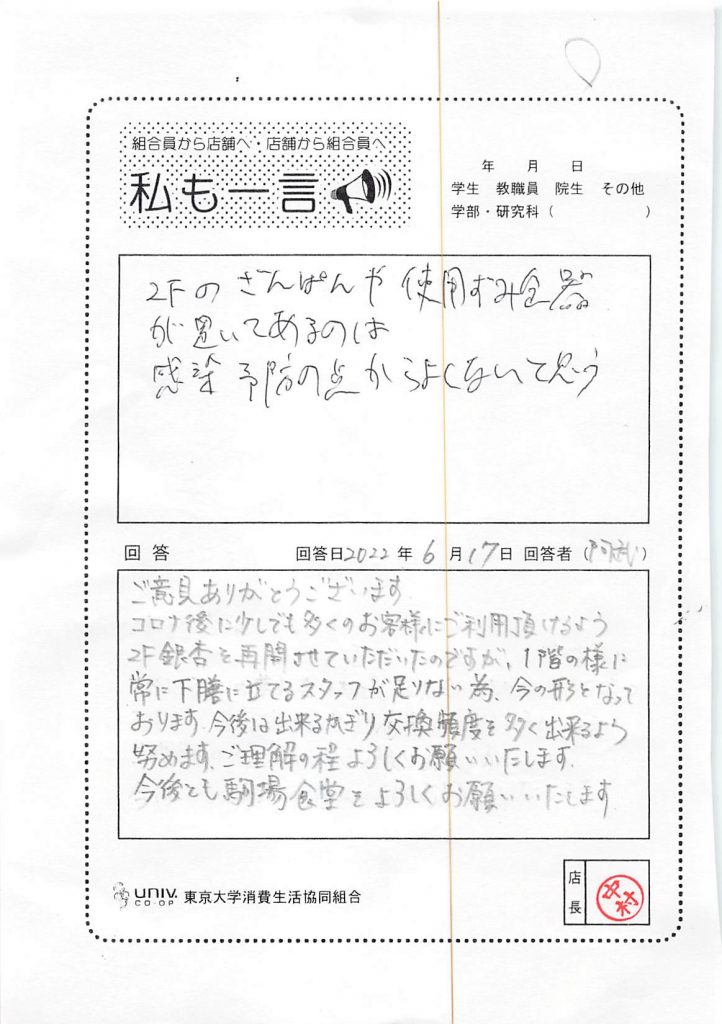 組合員から店舗へ・店舗から組合員へ
私も一言
年 月 日
学生 教職員 院生 その他
学部・研究科( )
2Fの ざんぱんや 使用ずみ食器
が置いてあるのは
感染予防の点からよくないて思う
回答 回答日2022年6月17日 回答者(阿武)
ご意見ありがとうございます
コロナ後に少しでも多くのお客様にご利用頂けるよう
2F銀杏を再開させていただいたのですが、1階の様に
常に下膳に立てるスタッフが足りない為、今の形となって
おります。今後は出来るかぎり交換頻度を多く出来るよう
努めます。ご理解の程よろしくお願いいたします。
今後とも駒場食堂をよろしくお願いいたします
UNIV. CO-OP 東京大学消費生活協同組合
店長 中村